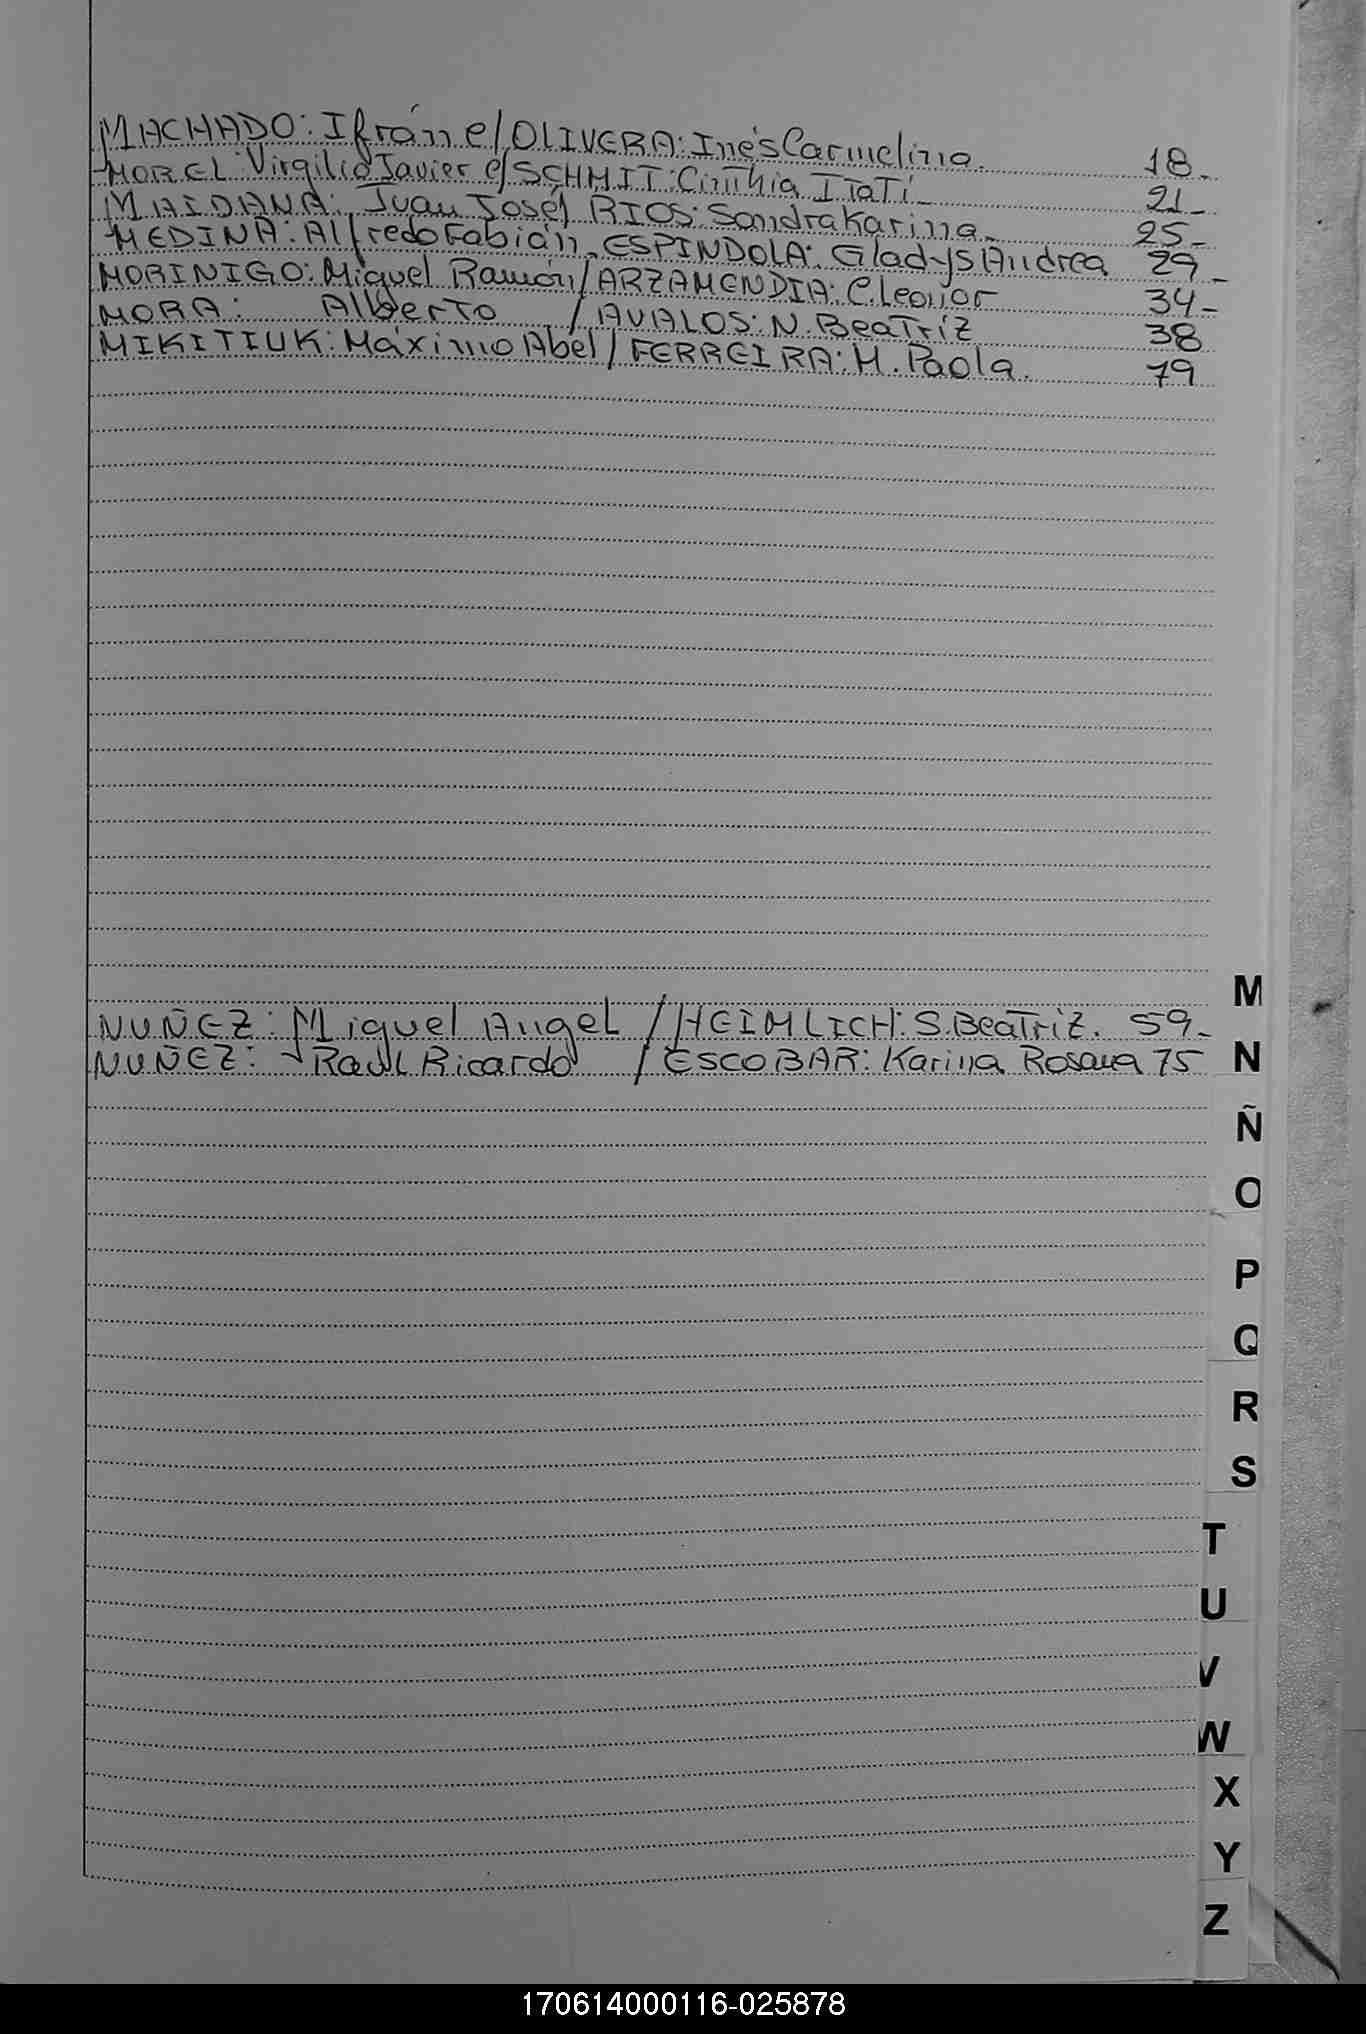 MACHADO: Ifrán e/ OLIVERA: Inés Carmelina. 18.
MOREL: Virgilio Javier e/ SCHMIT: Cinthia ITaTí_ 21_
MAIDANA: Juan José/ RIOS: Sandra Karina_ 25_
MEDINA: Alfredo Fabián, ESPINDOLA: Gladys Andrea 29_
MORINIGO: Miguel Ramón/ ARZAMENDIA: C. Leonor 34_
MORA: Alberto / AVALOS: N. BeaTriz 38
MIKITIUK: Máximo Abel/ FERREIRA: M. Paola. 79
M
NUÑEZ: Miguel Angel / HEIMLICH: S. BeaTriz. 59_
NUÑEZ: Raul Ricardo / ESCOBAR: Karina Rosana 75
N
Ñ
O
P
Q
R
S
T
U
V
W
X
Y
Z
170614000116-025878